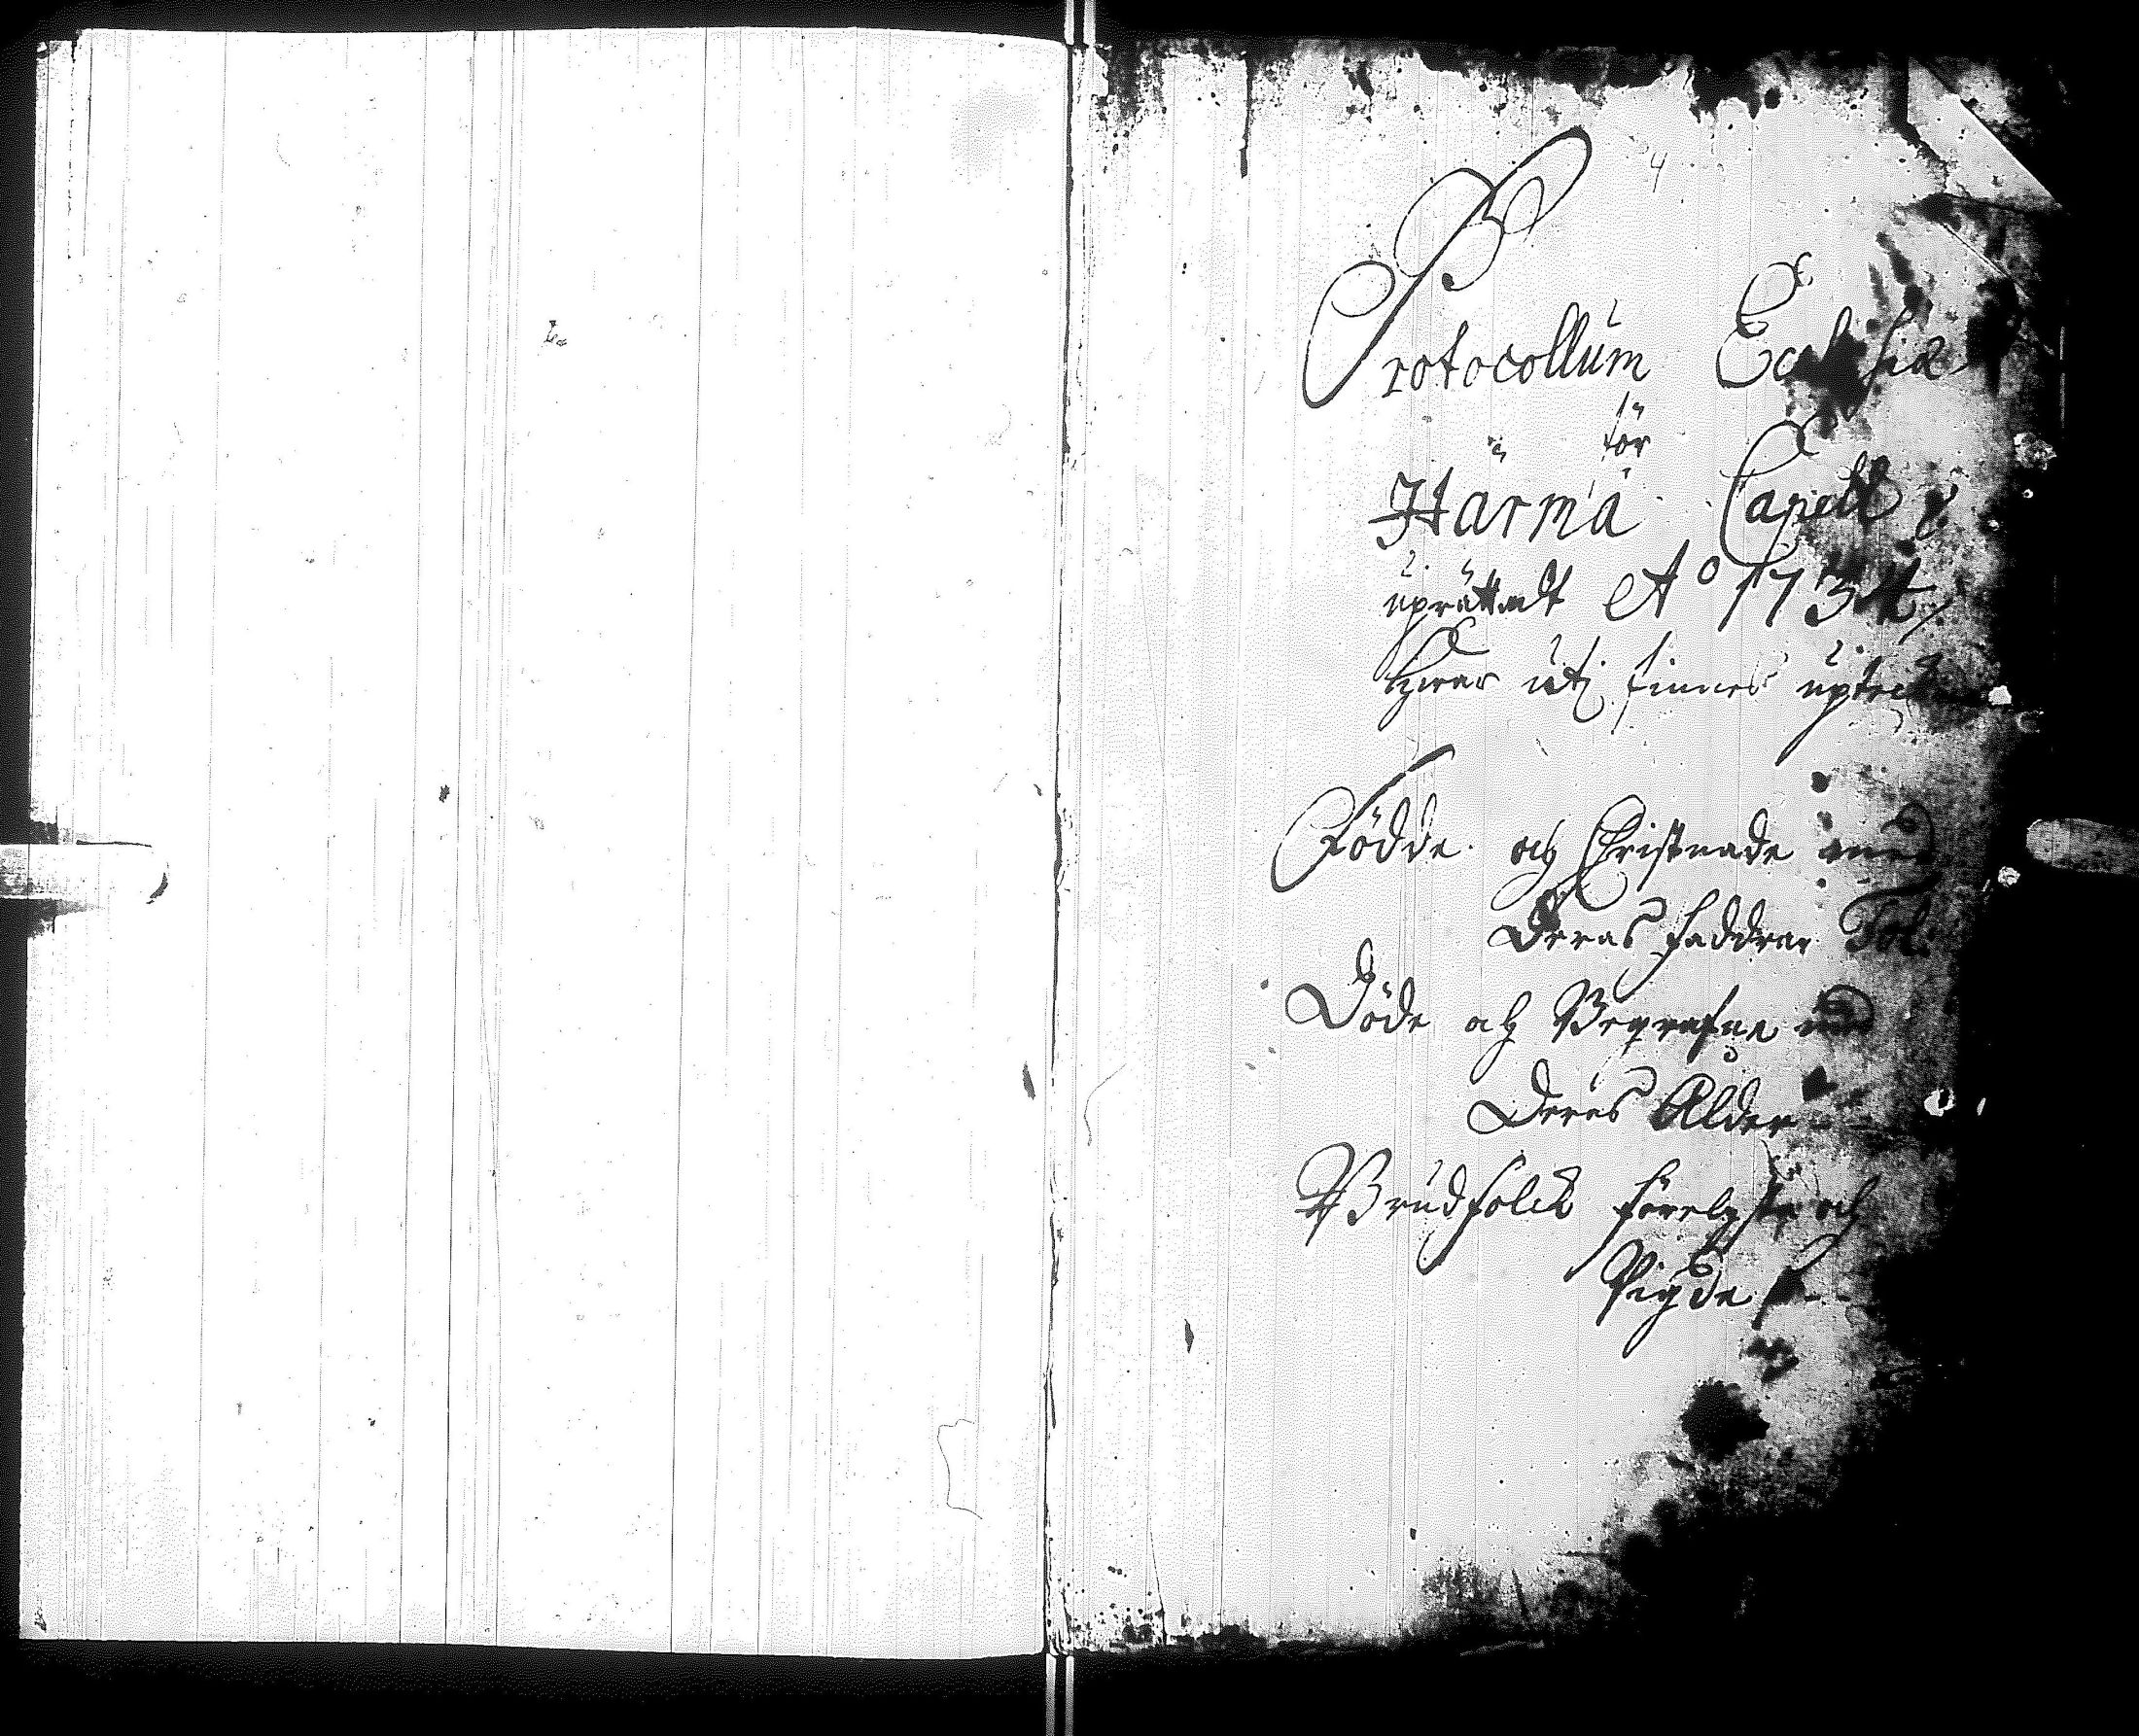 4
Protocollum Ecclesiæ
för
Härmä Capell
uprättadt A:o 1734
Hwar uti finnes
Födde och Christnade med
Deras faddrar Fol:
Döde och Begrafne med
Deras Ålder
Brudfolck förelyste och
Vigde